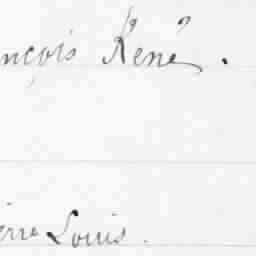 nçois René.
erre Louis.